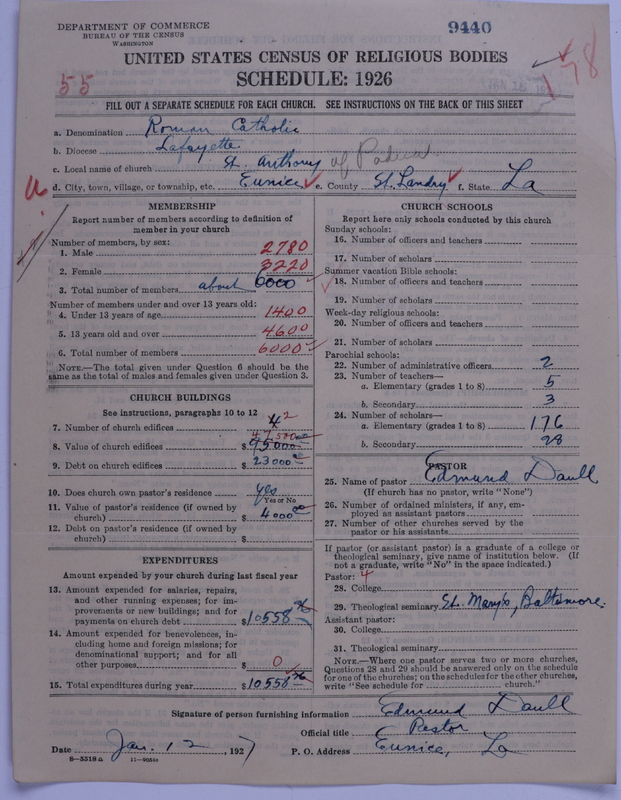 DEPARTMENT OF COMMERCE
BUREAU OF THE CENSUS
WASHINGTON
9440
178
UNITED STATES CENSUS OF RELIGIOUS BODIES
SCHEDULE: 1926
55
FILL OUT A SEPARATE SCHEDULE FOR EACH CHURCH. SEE INSTRUCTIONS ON THE BACK OF THIS SHEET
a. Denomination Roman Catholic
b. Diocese Lafayette
c. Local name of church St. Anthony of Padua
d. City, town, village, or township, etc. Eunice e. County St. Landry f. State La
MEMBERSHIP
Report number of members according to definition of
member in your church
Number of members, by sex:
1. Male 2780
2. Female 3220
3. Total number of members about 6000
Number of members under and over 13 years old:
4. Under 13 years of age 1400
5. 13 years old and over 4600
6. Total number of members 6000
NOTE.—The total given under Question 6 should be the
same as the total of males and females given under Question 3.
CHURCH BUILDINGS
See instructions, paragraphs 10 to 12
7. Number of church edifices 4 2
8. Value of church edifices $ 95000
9. Debt on church edifices $ 23000
10. Does church own pastor's residence yes
Yes or No
11. Value of pastor's residence (if owned by
church) $ 4000
12. Debt on pastor's residence (if owned by
church) $
EXPENDITURES
Amount expended by your church during last fiscal year
13. Amount expended for salaries, repairs,
and other running expenses; for im-
provements or new buildings; and for
payments on church debt $ 10558
14. Amount expended for benevolences, in-
cluding home and foreign missions; for
denominational support; and for all
other purposes $ 0
15. Total expenditures during year $ 10558
CHURCH SCHOOLS
Report here only schools conducted by this church
Sunday schools:
16. Number of officers and teachers
17. Number of scholars
Summer vacation Bible schools:
18. Number of officers and teachers
19. Number of scholars
Week-day religious schools:
20. Number of officers and teachers
21. Number of scholars
Parochial schools:
22. Number of administrative officers 2
23. Number of teachers—
a. Elementary (grades 1 to 8) 5
b. Secondary 3
24. Number of scholars—
a. Elementary (grades 1 to 8) 176
b. Secondary 28
PASTOR
25. Name of pastor Edmund Daull
(If church has no pastor, write "None")
26. Number of ordained ministers, if any, em-
ployed as assistant pastors
27. Number of other churches served by the
pastor or his assistants
If pastor (or assistant pastor) is a graduate of a college or
theological seminary, give name of institution below. (If
not a graduate, write "No" in the space indicated.)
Pastor: 4
28. College
29. Theological seminary St. Mary's, Baltimore.
Assistant pastor:
30. College
31. Theological seminary
NOTE.—Where one pastor serves two or more churches,
Questions 28 and 29 should be answered only on the schedule
for one of the churches; on the schedules for the other churches,
write "See schedule for church."
Signature of person furnishing information Edmund Daull
Official title Pastor
Date Jan. 12 1927 P. O. Address Eunice, La
8—5518a